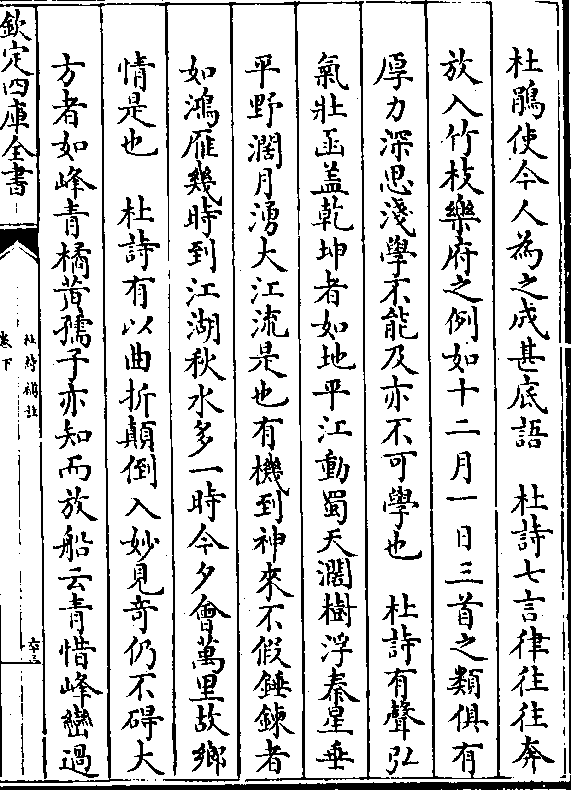 杜鵑使今人為之成甚底語　杜詩七言律往往奔
放入竹枝樂府之例如十二月一日三首之類俱有
厚力深思淺學不能及亦不可學也　杜詩有聲弘
氣壯函蓋乾坤者如地平江動蜀天濶樹浮秦星垂
平野濶月湧大江流是也有機到神來不假錘鍊者
如鴻雁幾時到江湖秋水多一時今夕會萬里故鄉
情是也　杜詩有以曲折顛倒入妙見奇仍不碍大
方者如峰青橘黄孺子亦知而放船云青惜峰巒過
欽定四庫全書
杜詩攟
卷下